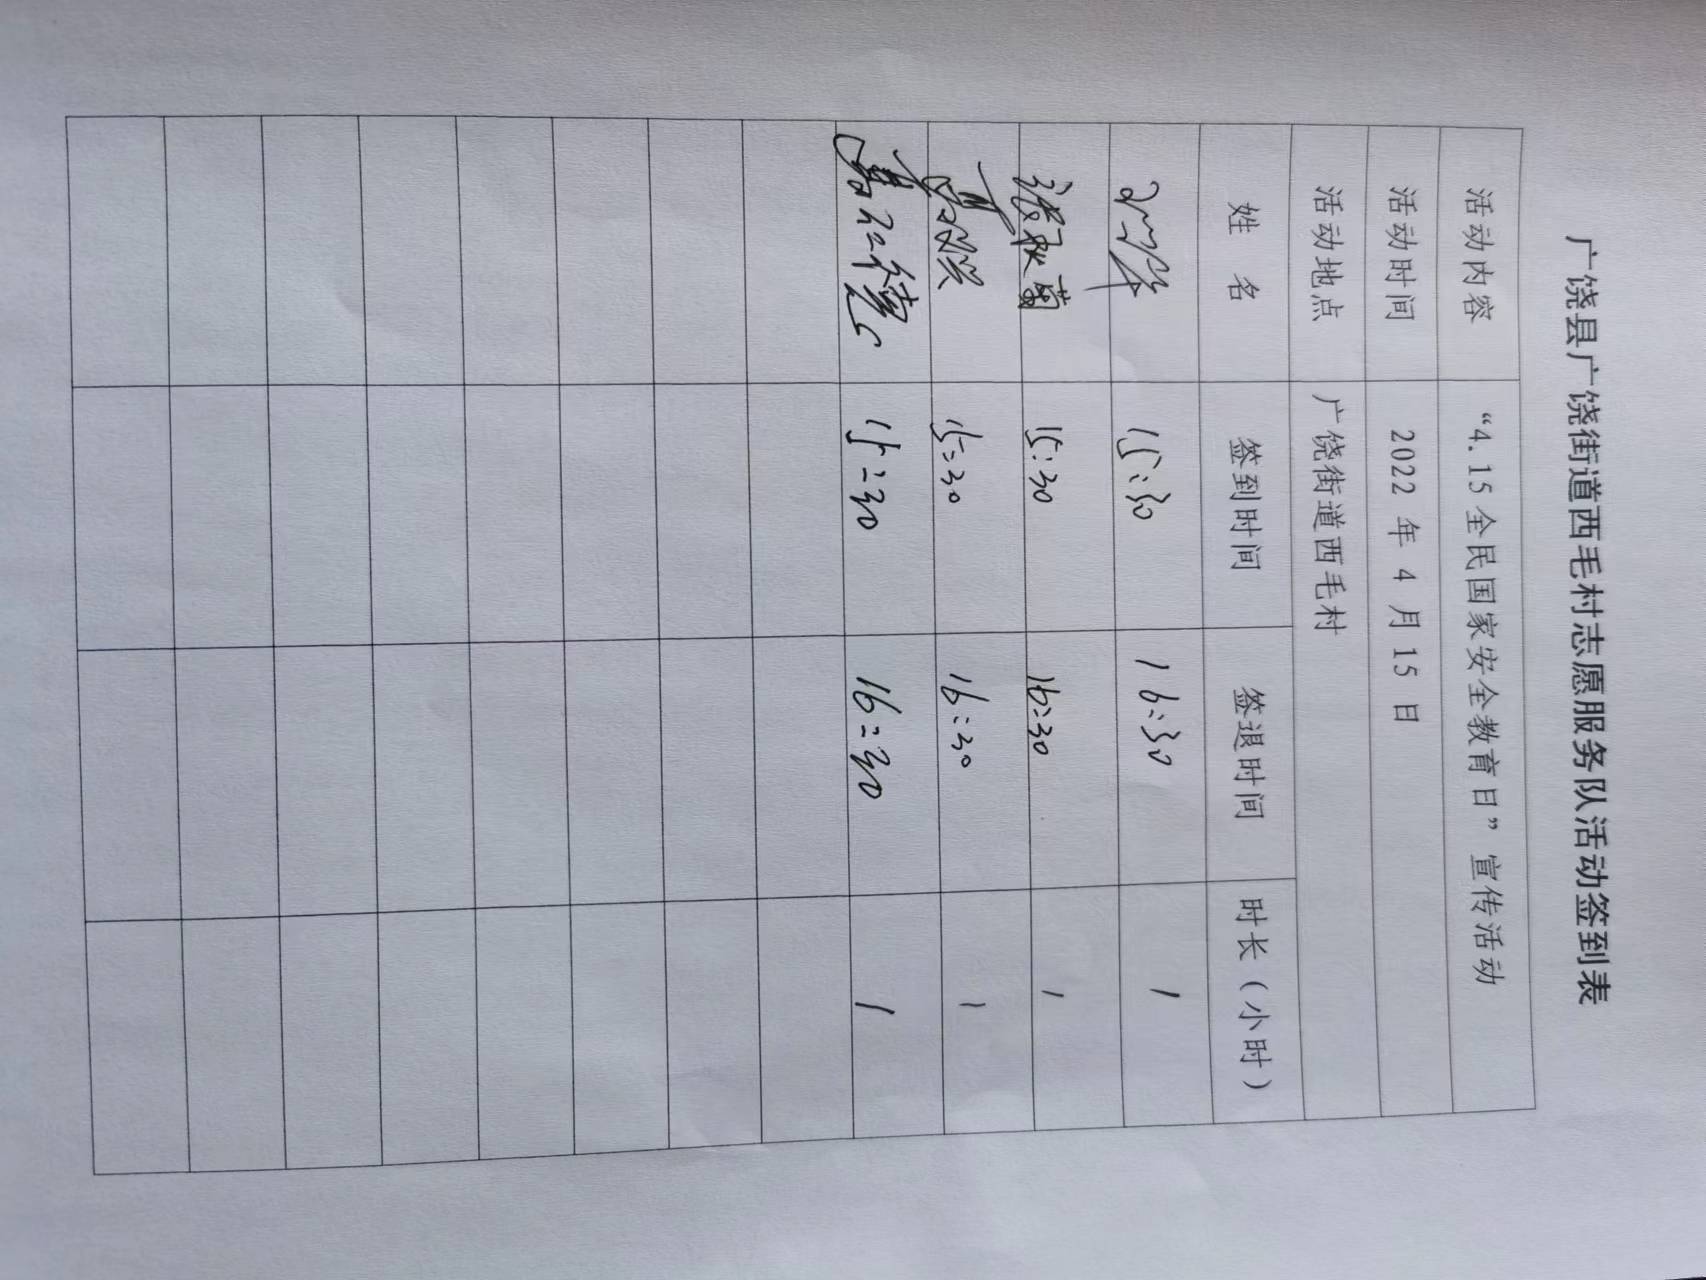 广饶县广饶街道西毛村志愿服务队活动签到表
活动内容 “4.15全民国家安全教育日”宣传活动
活动时间 2022 年 4 月 15 日
活动地点 广饶街道西毛村
姓 名 签到时间 签退时间 时长（小时）
15:30 16:30 1
张秋菊 15:30 16:30 1
15:30 16:30 1
15:30 16:30 1